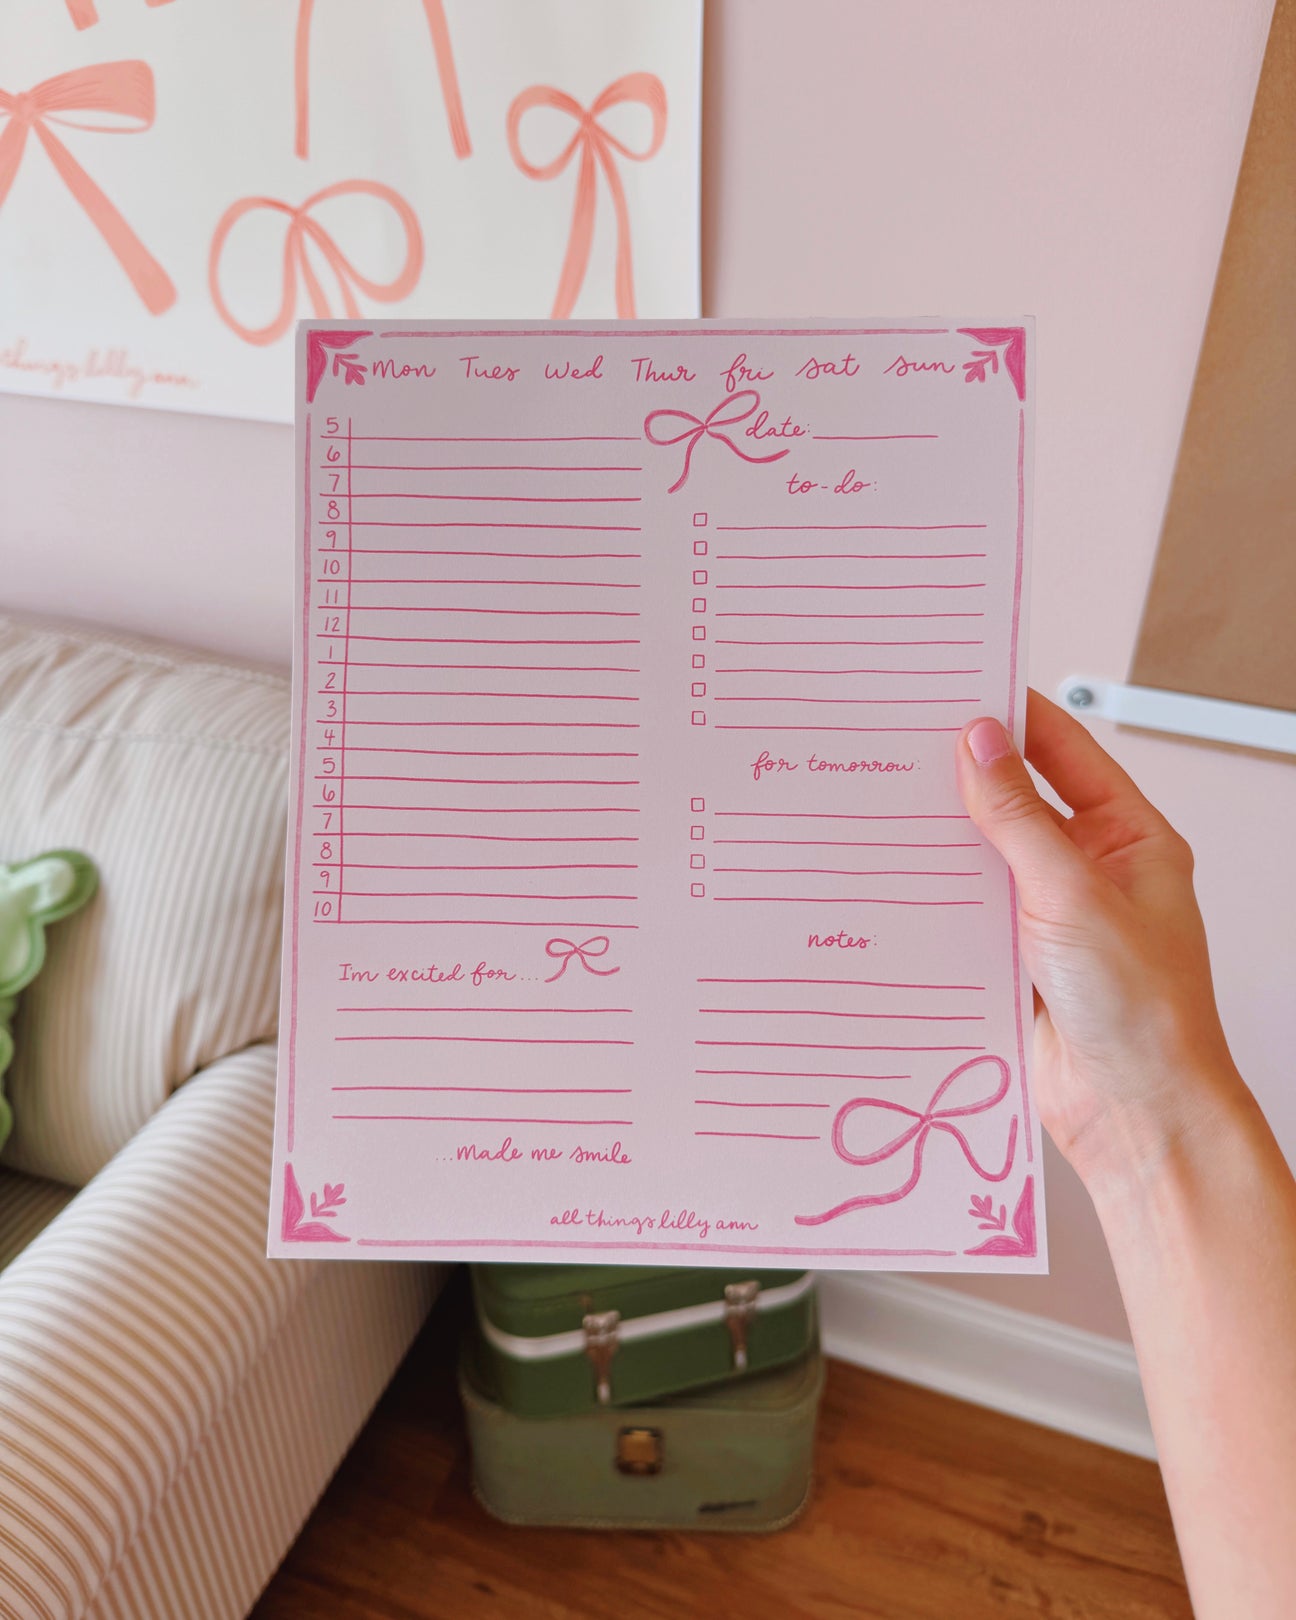 things lilly ann
Mon Tues Wed Thur fri sat sun
5
6
7
8
9
10
11
12
1
2
3
4
5
6
7
8
9
10
I'm excited for...
...made me smile
date:
to-do:
for tomorrow:
notes:
all things lilly ann